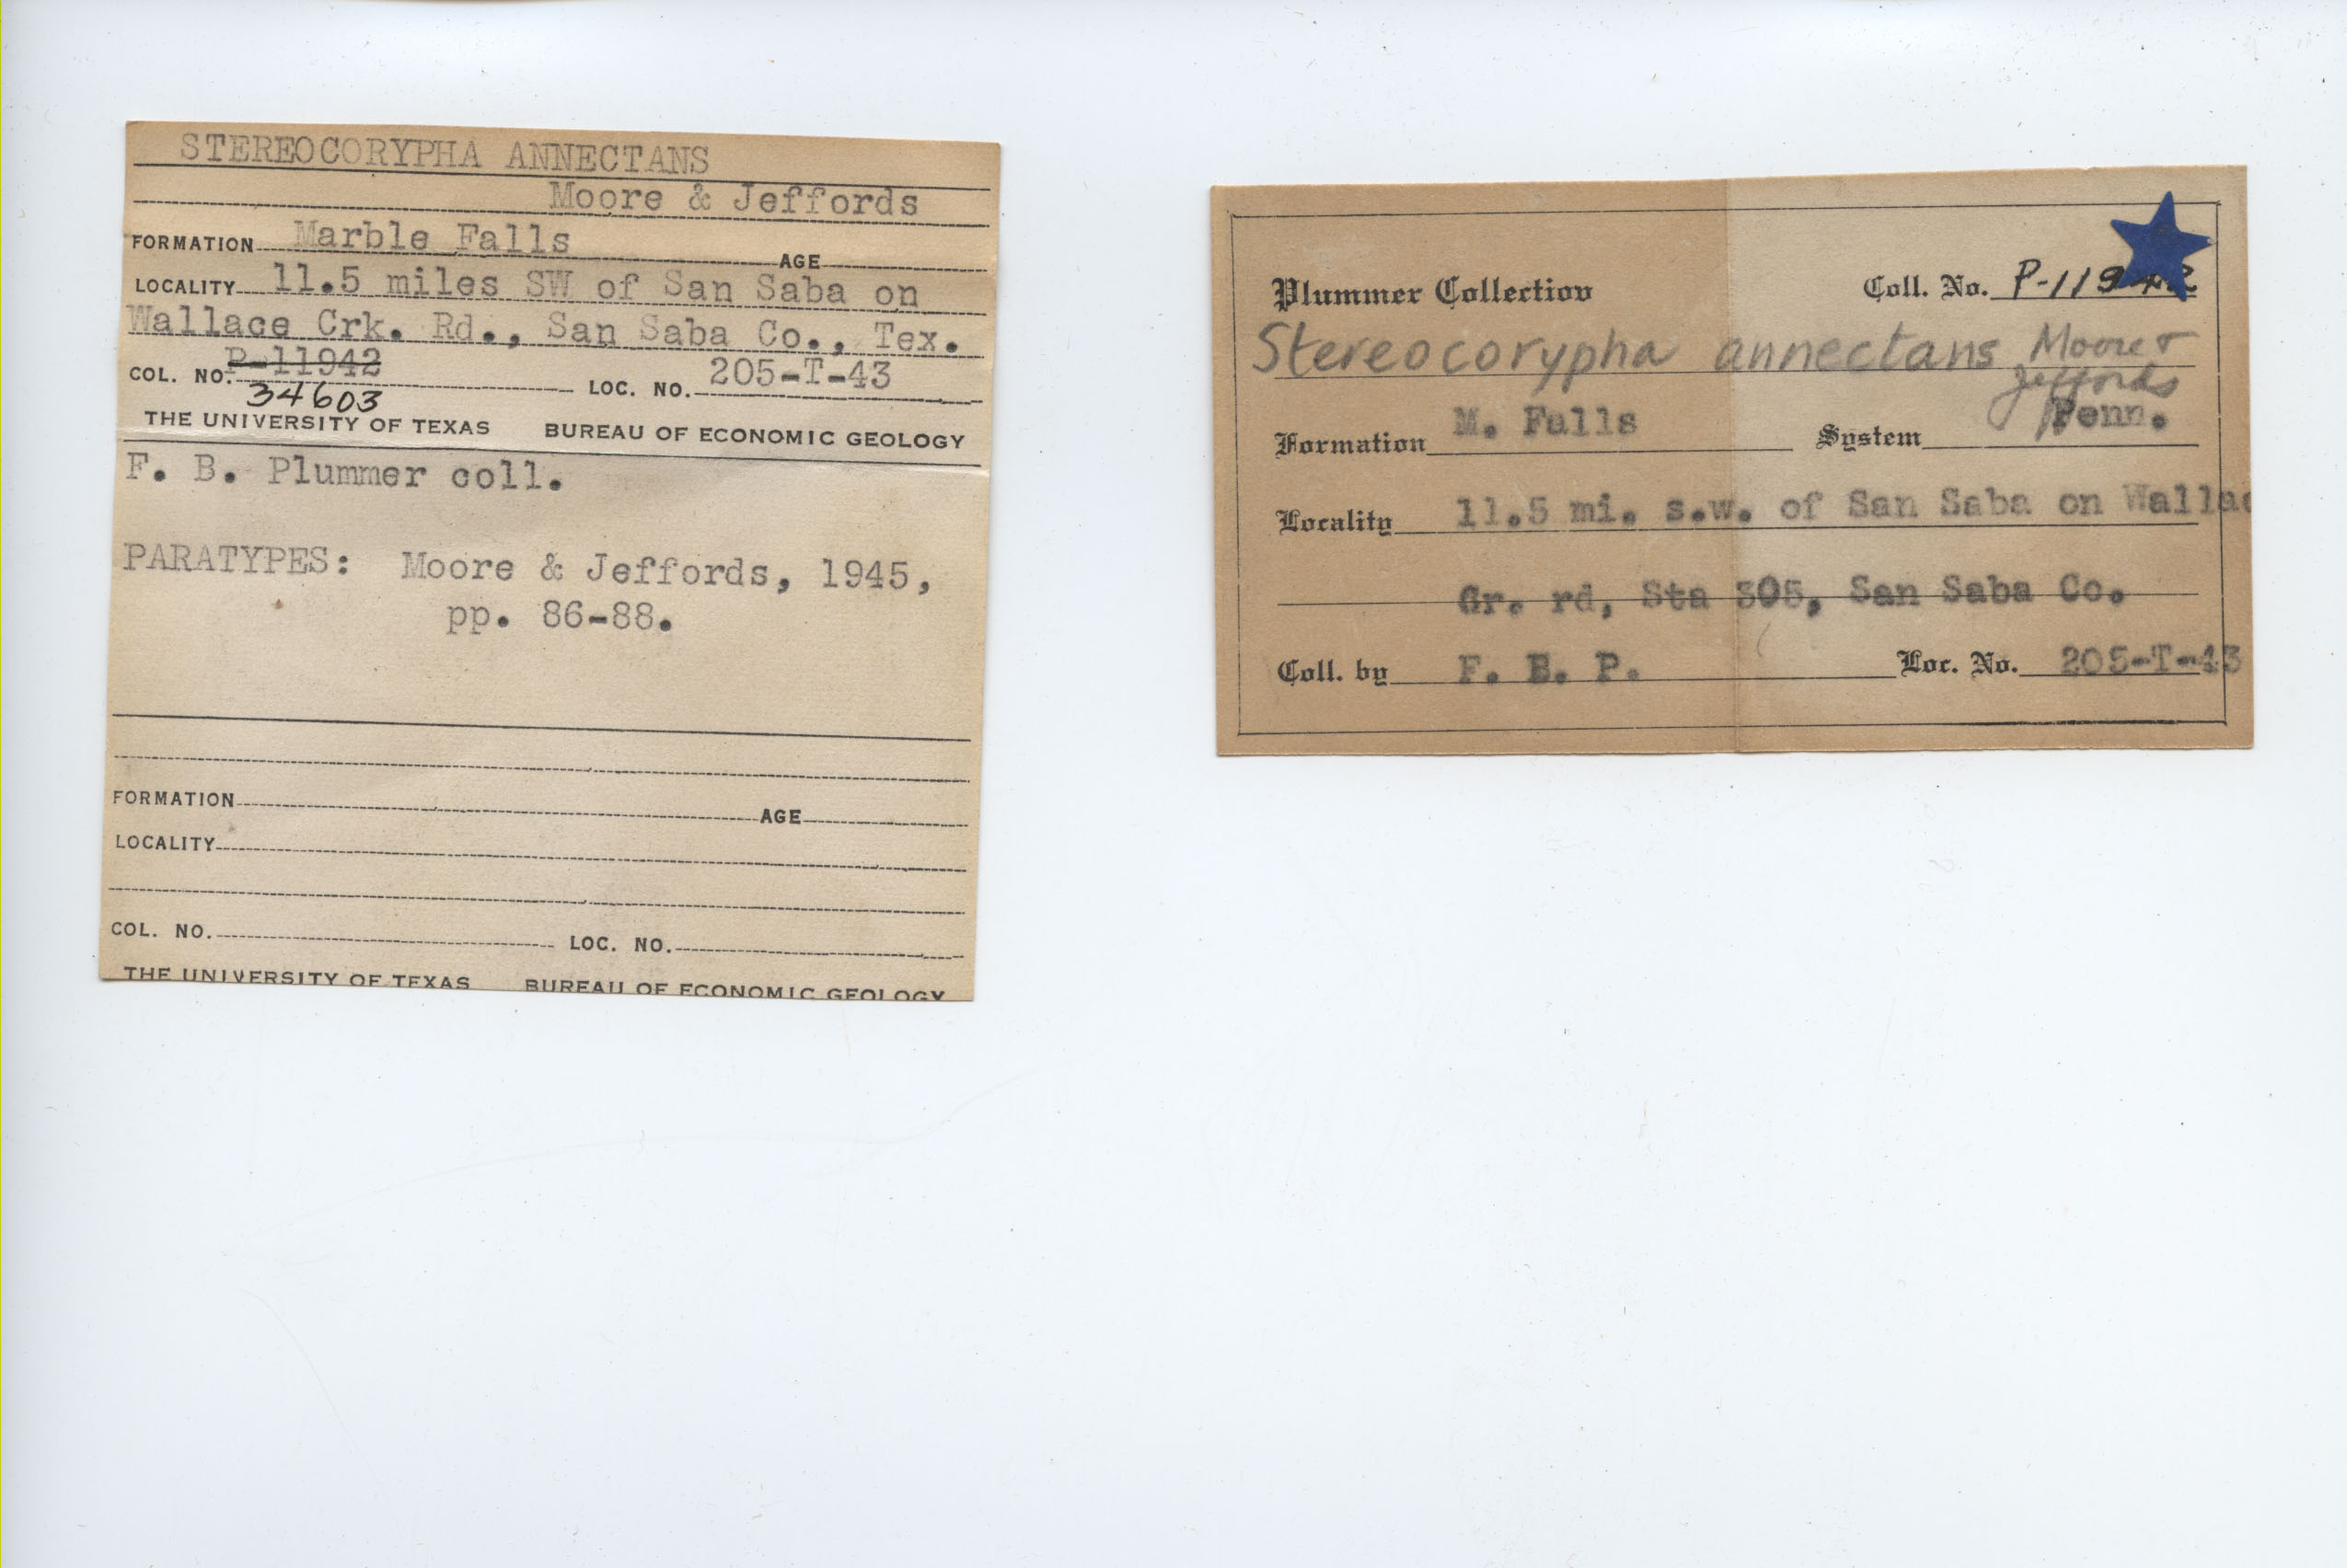 STEREOCORYPHA ANNECTANS
Moore & Jeffords
FORMATION Marble Falls AGE
LOCALITY 11.5 miles SW of San Saba on
Wallace Crk. Rd., San Saba Co., Tex.
COL. NO. P-11942 LOC. NO. 205-T-43
34603
THE UNIVERSITY OF TEXAS BUREAU OF ECONOMIC GEOLOGY
F. B. Plummer coll.
PARATYPES: Moore & Jeffords, 1945,
pp. 86-88.
FORMATION AGE
LOCALITY
COL. NO. LOC. NO.
THE UNIVERSITY OF TEXAS BUREAU OF ECONOMIC GEOLOGY
Plummer Collection Coll. No. P-11942
Stereocorypha annectans Moore &
Jeffords
Formation M. Falls System Penn.
Locality 11.5 mi. s.w. of San Saba on Wallac
Gr. rd, Sta 305, San Saba Co.
Coll. by F. B. P. Loc. No. 205-T-43